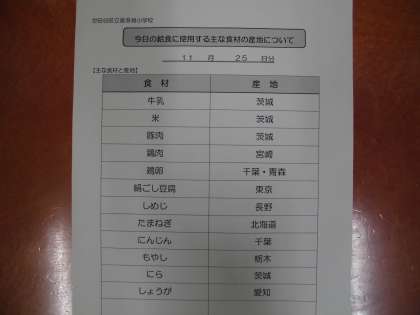 世田谷区立 小学校
今日の給食に使用する主な食材の産地について
11 月 25 日分
【主な食材と産地】
食 材 産 地
牛乳 茨城
米 茨城
豚肉 茨城
鶏肉 宮崎
鶏卵 千葉・青森
絹ごし豆腐 東京
しめじ 長野
たまねぎ 北海道
にんじん 千葉
もやし 栃木
にら 茨城
しょうが 愛知